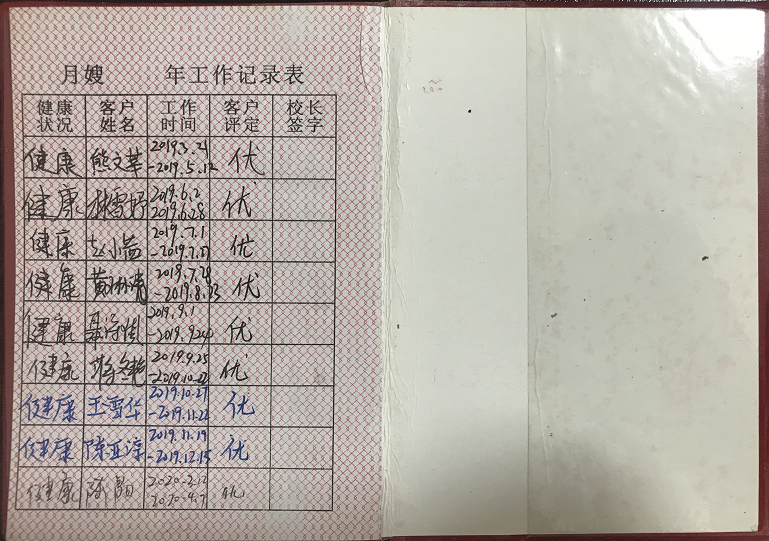 月嫂 年工作记录表
健康状况 客户姓名 工作时间 客户评定 校长签字
健康 熊文革 2019.3.21-2019.5.12 优
健康 林雪婷 2019.6.2 2019.6.28 优
健康 赵小益 2019.7.1-2019.7.27 优
健康 黄 2019.7.28-2019.8.23 优
健康 2019.9.1-2019.9.24 优
健康 2019.9.25-2019.10.22 优
健康 王雪华 2019.10.27-2019.11.22 优
健康 陈亚淳 2019.11.19-2019.12.15 优
健康 2020.2.12 2020.4.7 优